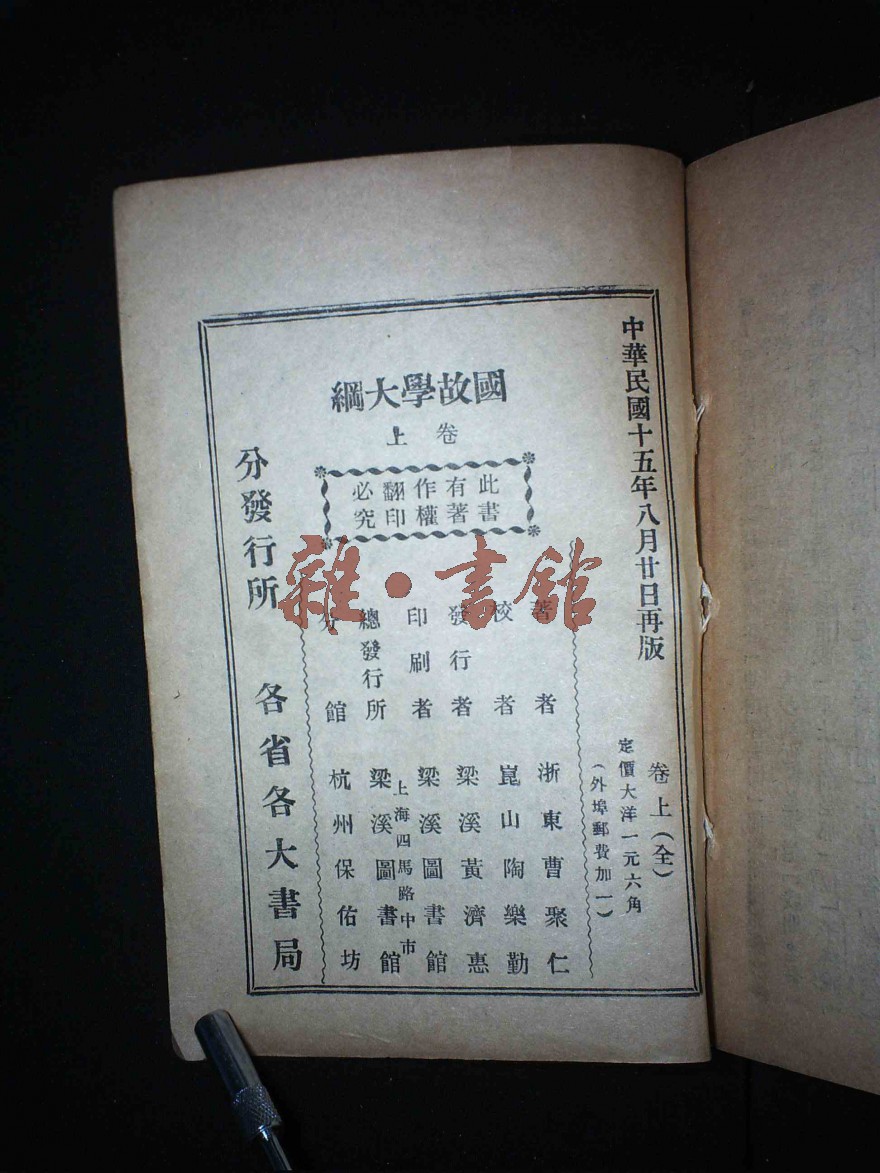 中華民國十五年八月廿日再版
卷上(全)
定價大洋一元六角
(外埠郵費加一)
國故學大綱
卷上
此書
有著
作權
翻印
必究
著者 浙東曹聚仁
校者 崑山陶樂勤
發行者 梁溪黃濟惠
印刷者 梁溪圖書館
上海四馬路中市
總發行所 梁溪圖書館
分館 杭州保佑坊
分發行所 各省各大書局
雜·書館